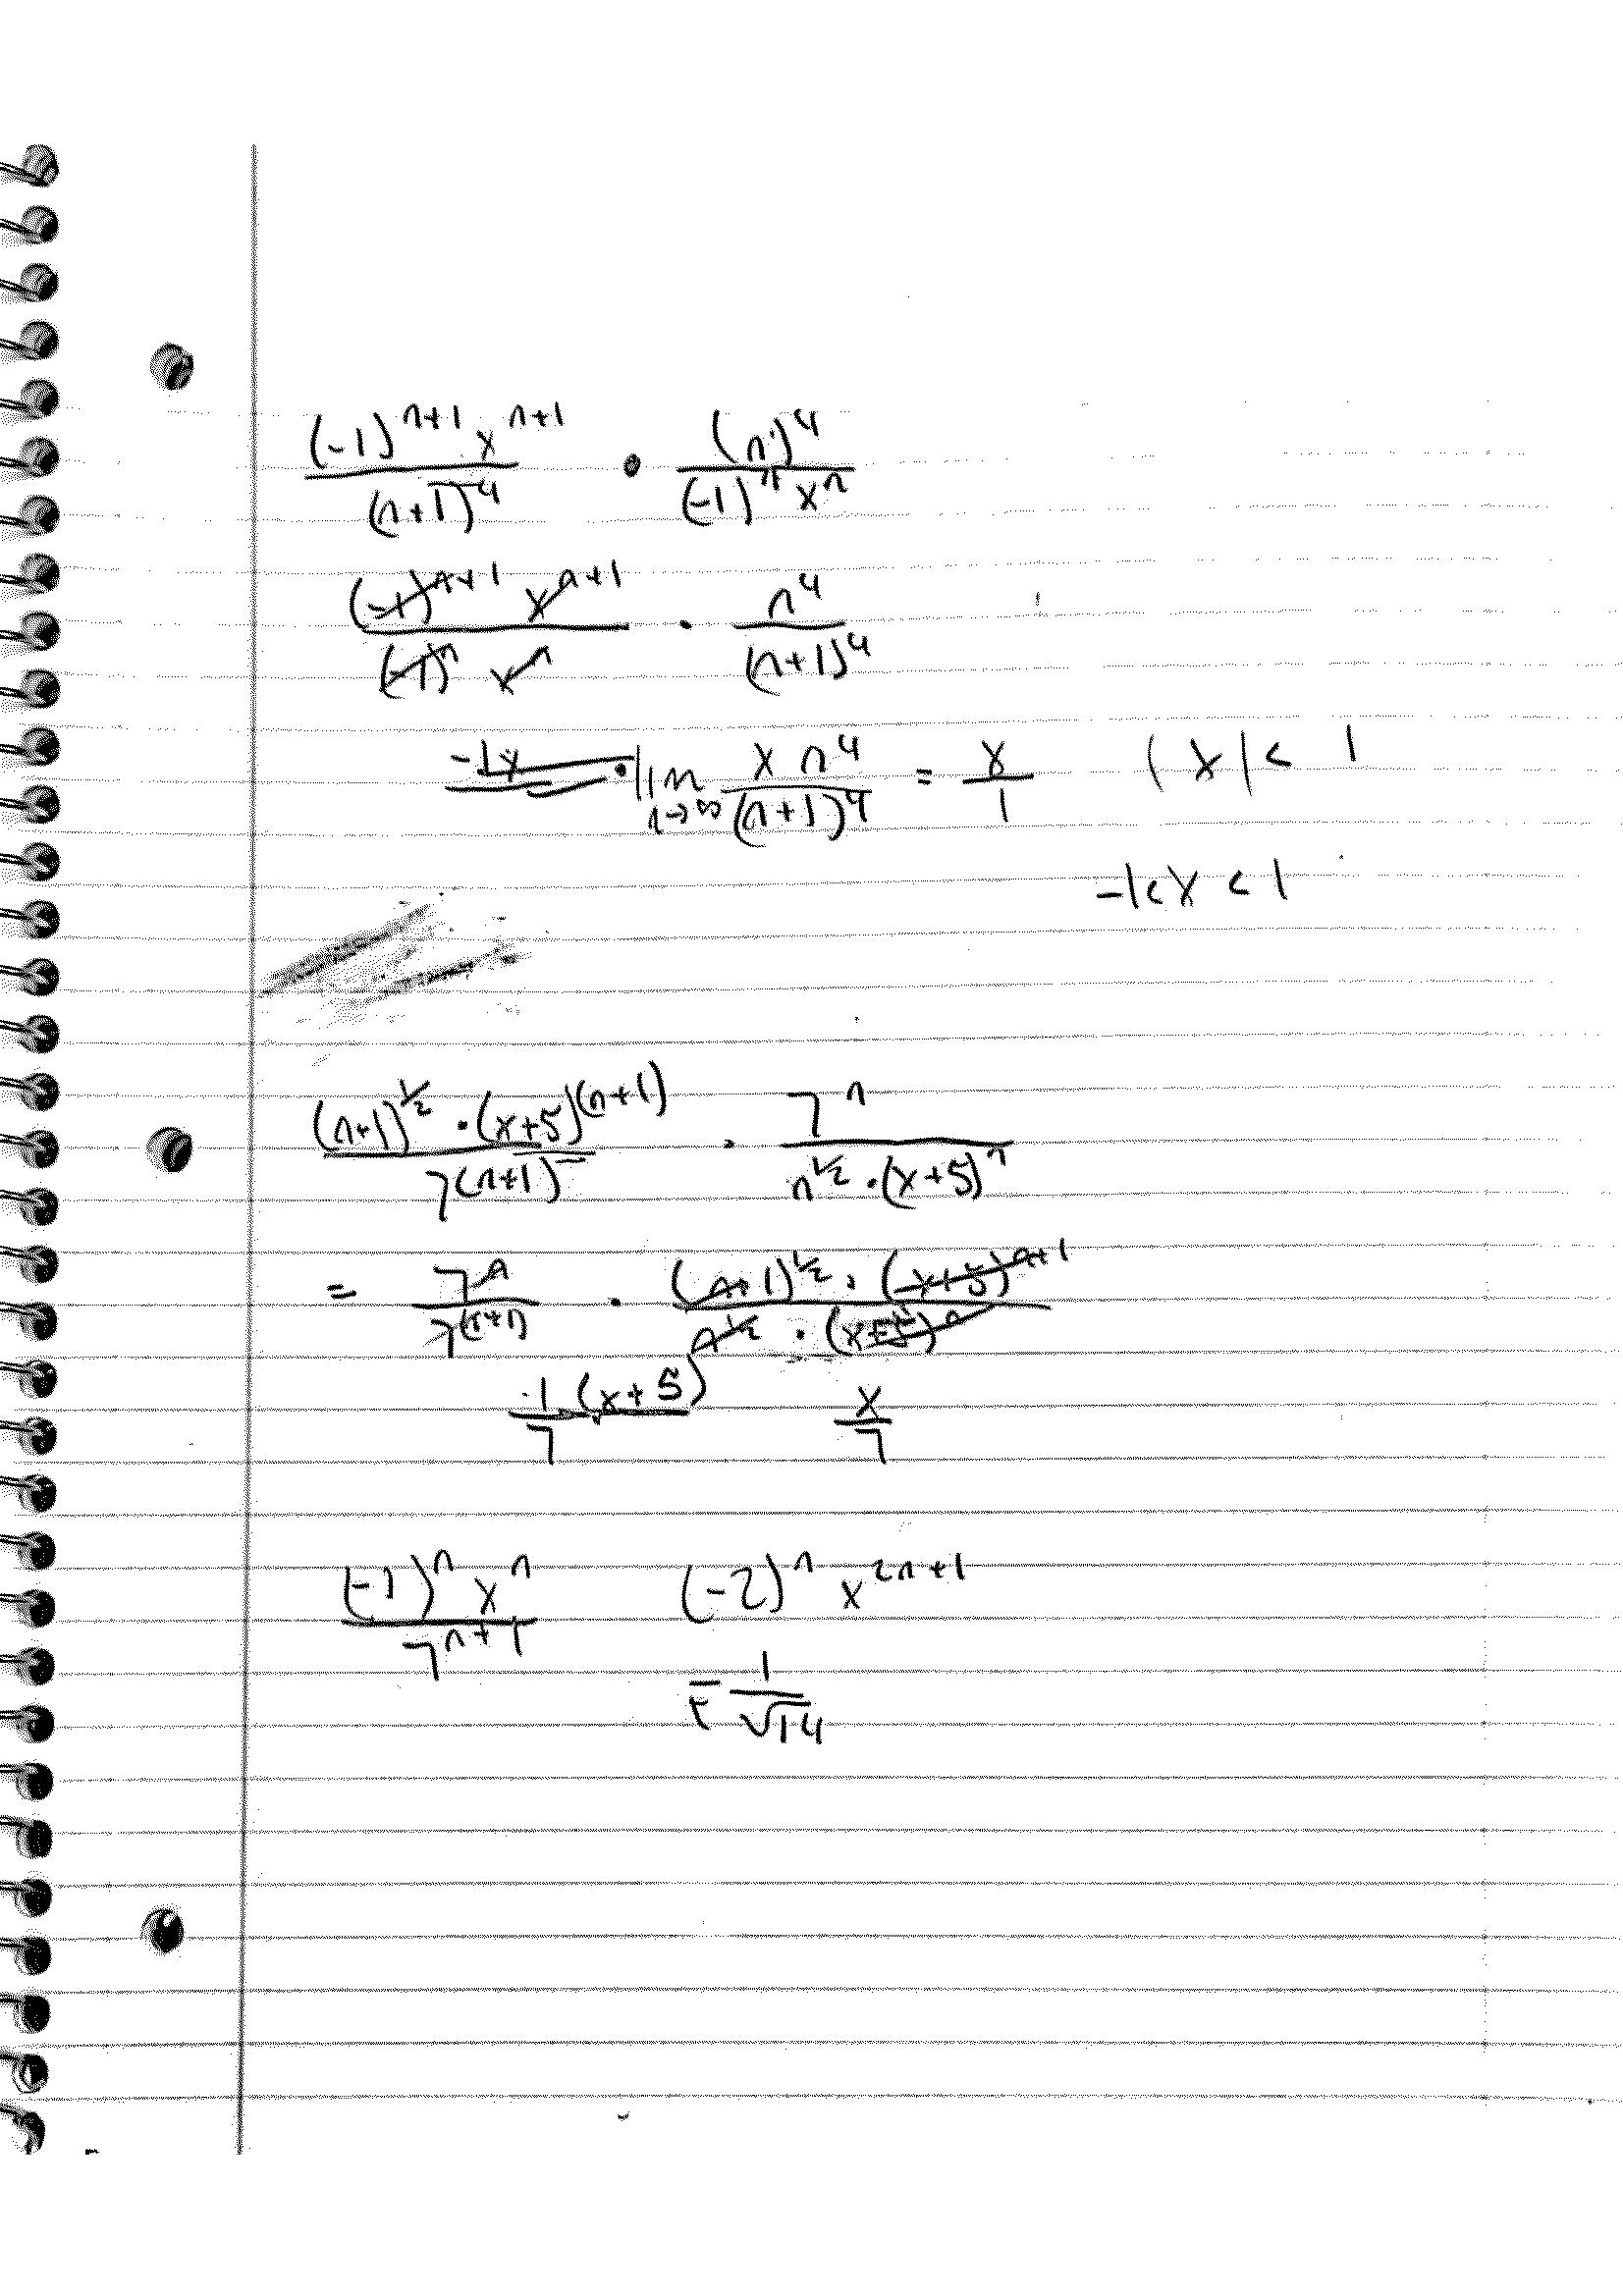 (-1)^{n+1} x^{n+1} / (n+1)^4 · (n)^4 / (-1)^n x^n
(-1)^{n+1} x^{n+1} / (-1)^n x^n · n^4 / (n+1)^4
-1x · lim n→∞ x n^4 / (n+1)^4 = x/1 |x| < 1
-1 < x < 1
(n+1)^{1/2} · (x+5)^{(n+1)} / 7^{(n+1)} · 7^n / n^{1/2} · (x+5)^n
= 7^n / 7^{(n+1)} · (n+1)^{1/2} · (x+5)^{n+1} / n^{1/2} · (x+5)^n
1/7 (x+5) x/7
(-1)^n x^n / 7^{n+1} (-2)^n x^{2n+1}
1/√14